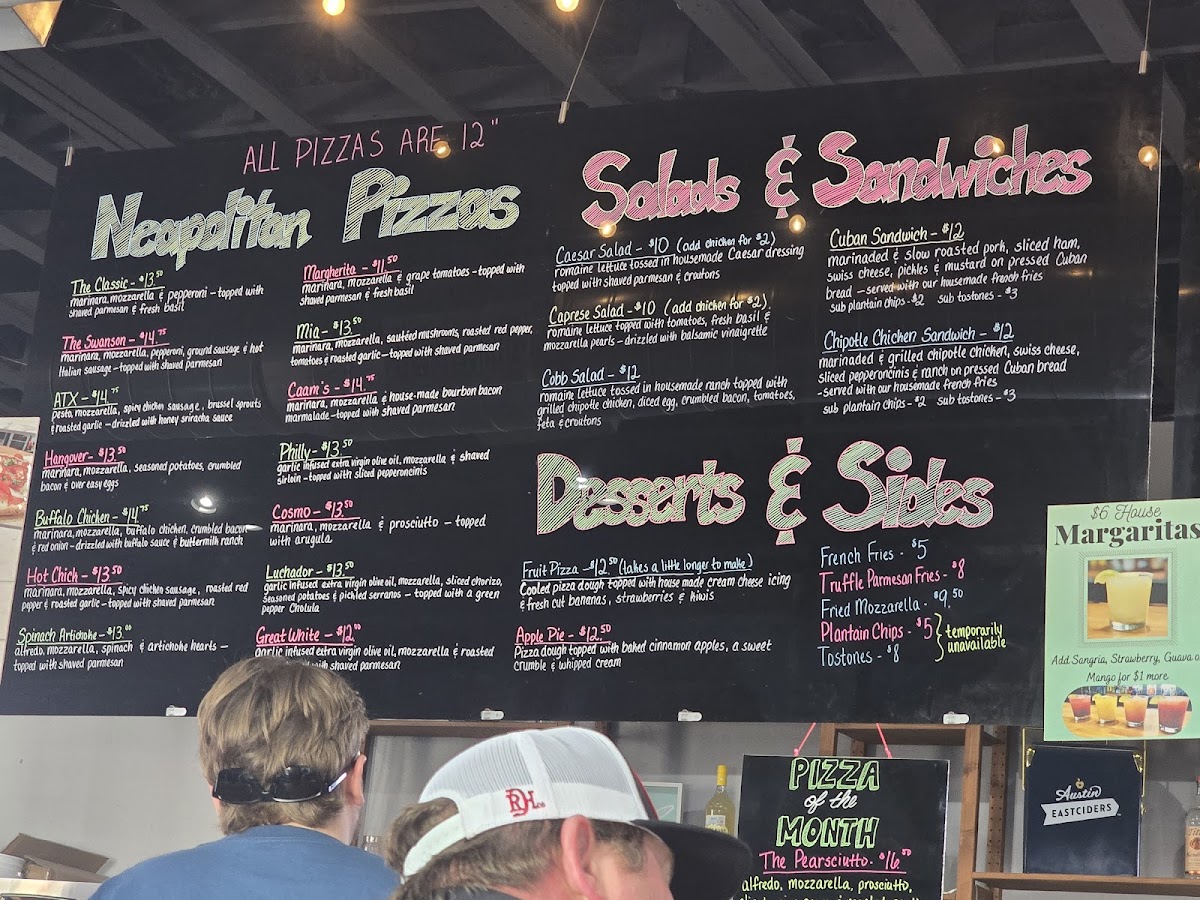 ALL PIZZAS ARE 12"
Neapolitan Pizzas
The Classic - $13.50
marinara, mozzarella & pepperoni - topped with
shaved parmesan & fresh basil
The Swanson - $14.75
marinara, mozzarella, pepperoni, ground sausage & hot
Italian sausage - topped with shaved parmesan
ATX - $14.75
pesto, mozzarella, spicy chicken sausage, brussel sprouts
& roasted garlic - drizzled with honey sriracha sauce
Hangover - $13.50
marinara, mozzarella, seasoned potatoes, crumbled
bacon & over easy eggs
Buffalo Chicken - $14.75
marinara, mozzarella, buffalo chicken, crumbled bacon
& red onion - drizzled with buffalo sauce & buttermilk ranch
Hot Chick - $13.50
marinara, mozzarella, spicy chicken sausage, roasted red
pepper & roasted garlic - topped with shaved parmesan
Spinach Artichoke - $13.00
alfredo, mozzarella, spinach & artichoke hearts -
topped with shaved parmesan
Margherita - $11.50
marinara, mozzarella & grape tomatoes - topped with
shaved parmesan & fresh basil
Mia - $13.50
marinara, mozzarella, sautéed mushrooms, roasted red pepper,
tomatoes & roasted garlic - topped with shaved parmesan
Caam's - $14.75
marinara, mozzarella & house-made bourbon bacon
marmalade - topped with shaved parmesan
Philly - $13.50
garlic infused extra virgin olive oil, mozzarella & shaved
sirloin - topped with sliced pepperoncinis
Cosmo - $13.50
marinara, mozzarella & prosciutto - topped
with arugula
Luchador - $13.50
garlic infused extra virgin olive oil, mozzarella, sliced chorizo,
seasoned potatoes & pickled serranos - topped with a green
pepper Cholula
Great White - $12.00
garlic infused extra virgin olive oil, mozzarella & roasted
with shaved parmesan
Salads & Sandwiches
Caesar Salad - $10 (add chicken for $2)
romaine lettuce tossed in housemade Caesar dressing
topped with shaved parmesan & croutons
Caprese Salad - $10 (add chicken for $2)
romaine lettuce topped with tomatoes, fresh basil &
mozzarella pearls - drizzled with balsamic vinaigrette
Cobb Salad - $12
romaine lettuce tossed in housemade ranch topped with
grilled chipotle chicken, diced egg, crumbled bacon, tomatoes,
feta & croutons
Cuban Sandwich - $12
marinaded & slow roasted pork, sliced ham,
swiss cheese, pickles & mustard on pressed Cuban
bread - served with our housemade french fries
sub plantain chips - $2 sub tostones - $3
Chipotle Chicken Sandwich - $12
marinaded & grilled chipotle chicken, swiss cheese,
sliced pepperoncinis & ranch on pressed Cuban bread
- served with our housemade french fries
sub plantain chips - $2 sub tostones - $3
Desserts & Sides
Fruit Pizza - $12.50 (takes a little longer to make)
Cooled pizza dough topped with house made cream cheese icing
& fresh cut bananas, strawberries & kiwis
Apple Pie - $12.50
Pizza dough topped with baked cinnamon apples, a sweet
crumble & whipped cream
French Fries - $5
Truffle Parmesan Fries - $8
Fried Mozzarella - $9.50
Plantain Chips - $5
Tostones - $8
temporarily
unavailable
$6 House
Margaritas
Add Sangria, Strawberry, Guava o
Mango for $1 more
PIZZA
of the
MONTH
The Pearsciutto - $16.50
alfredo, mozzarella, prosciutto,
Austin
EASTCIDERS
RHCo